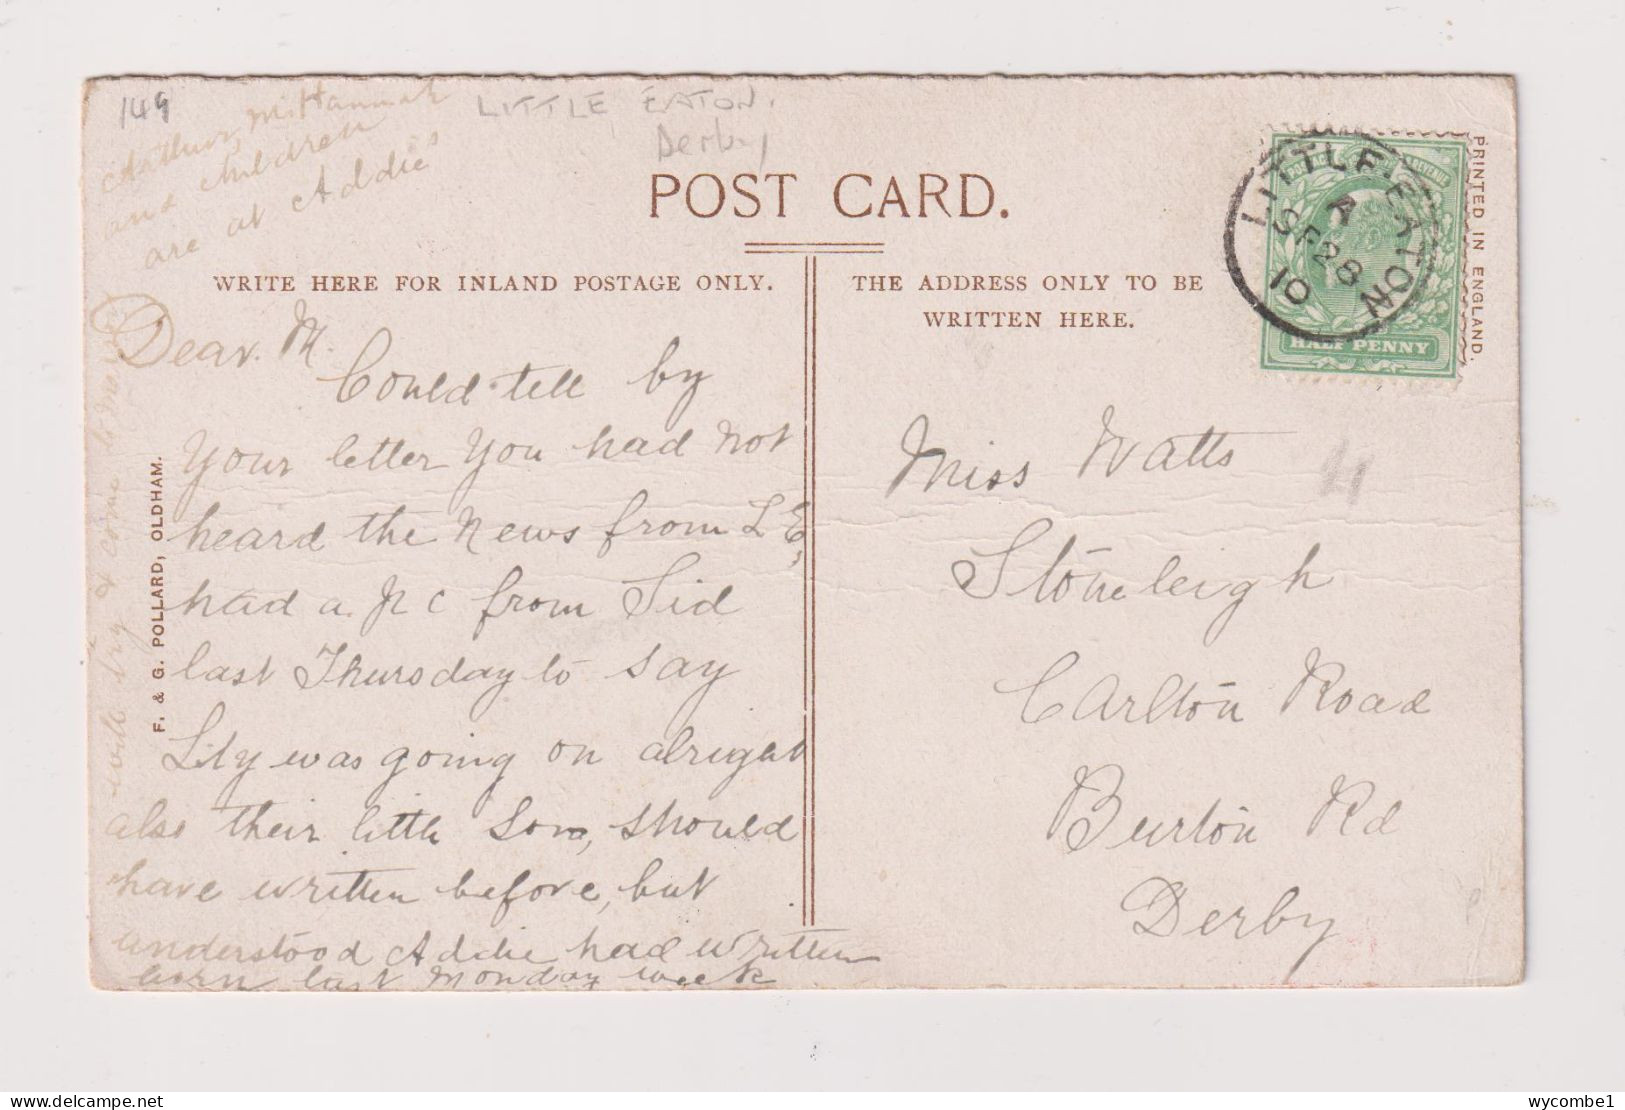 149
LITTLE EATON.
Derby
Arthur, Hannah
and children
are at Addie's
POST CARD.
WRITE HERE FOR INLAND POSTAGE ONLY.
THE ADDRESS ONLY TO BE
WRITTEN HERE.
PRINTED IN ENGLAND.
LITTLE-EATON
A
SP 28
10
POSTAGE REVENUE
HALF PENNY
Dear. M.
Could tell by
your letter you had not
heard the news from L E,
had a p c from Sid
last Thursday to say
Lily was going on alright
also their little Son, should
have written before, but
understood Addie had written
born last Monday week
will try & come
F. & G. POLLARD, OLDHAM.
Miss Watts
Stoneleigh
Carlton Road
Burton Rd
Derby
wycombe1